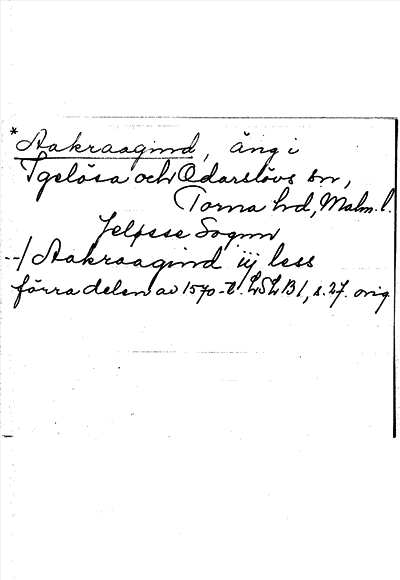 *Aakraagind, äng i
Igelösa och Odarslövs sn,
Torna hd, Malm. l.
Jeløsse Sognn
--/ Aakraagind iij less
förra delen av 1570-t. LSLB1, s. 27. orig